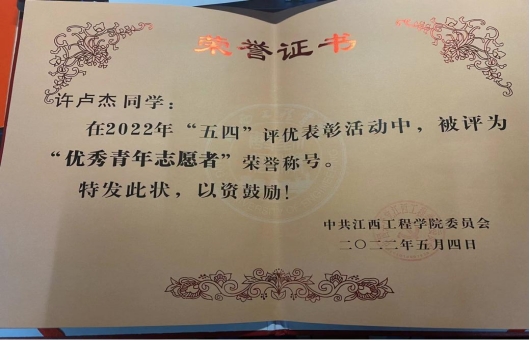 荣誉证书
许卢杰同学：
在2022年“五四”评优表彰活动中，被评为
“优秀青年志愿者”荣誉称号。
特发此状，以资鼓励！
中共江西工程学院委员会
二〇二二年五月四日